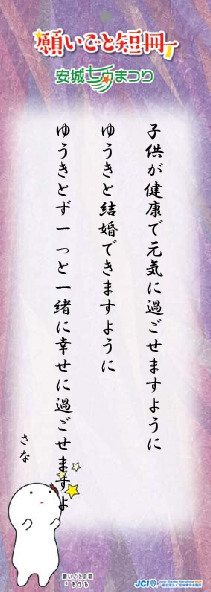 願いごと短冊
安城七夕まつり
子供が健康で元気に過ごせますように
ゆうきと結婚できますように
ゆうきとずーっと一緒に幸せに過ごせますよ
さな
JCI